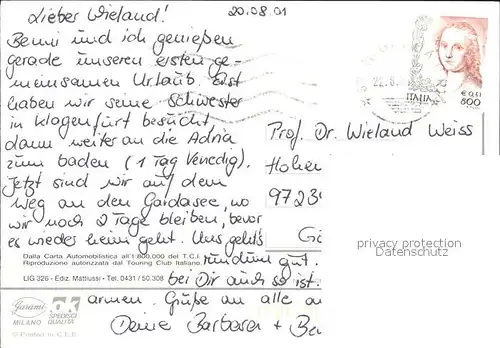 Lieber Wieland!
20.08.01
Benni und ich genießen
gerade unseren ersten ge-
meinsamen Urlaub. Erst
haben wir seine Schwester
in Klagenfurt besucht
dann weiter an die Adria
zum baden (1 Tag Venedig).
Jetzt sind wir auf dem
Weg an den Gardasee, wo
wir noch 2 Tage bleiben, bevor
es wieder heim geht. Uns geht's
rundum gut.
bei Dir auch so ist.
armen. Grüße an alle
Deine Barbara + Be
22.8.
ITALIA
€ 0,41
800
Prof. Dr. Wieland Weiss
Hohen
9723
privacy protection
Datenschutz
Dalla Carta Automobilistica all'1:800.000 del T.C.I.
Riproduzione autorizzata dal Touring Club Italiano
LIG 326 - Ediz. Mattiussi - Tel. 0431/50.308
Garami
MILANO
SPEDISCI
QUALITÀ
© Printed in C.E.E.